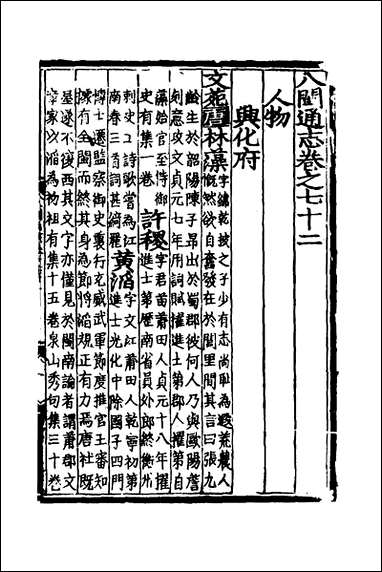 八閩通志卷之七十二
人物
興化府
文苑唐林藻字緯乾披之子少有志尚卑為遐荒農人
慨然欲自奮發在於閭里間其言曰張九
齡生於韶陽陳子昂出於蜀郡彼何人乃與歐陽詹
刻意攻文貞元七年用詞賦擢進士第郡人擢第自
藻始官至侍御
史有集一卷
許稷字君苗莆田人貞元十八年擢
進士第歷南省員外郎終衡州
刺史工詩歌嘗為江
南春三百詞甚綺麗
黄滔字文江莆田人乾寧初第
進士光化中除國子四門
博士遷監察御史裏行充威武軍節度推官王審知
據有全閩而終其身為節將滔規正有力焉唐社既
屋遂不復西其文字亦僅見於閩南論者謂莆郡文
章家以滔為初祖有集十五卷泉山秀句集三十卷